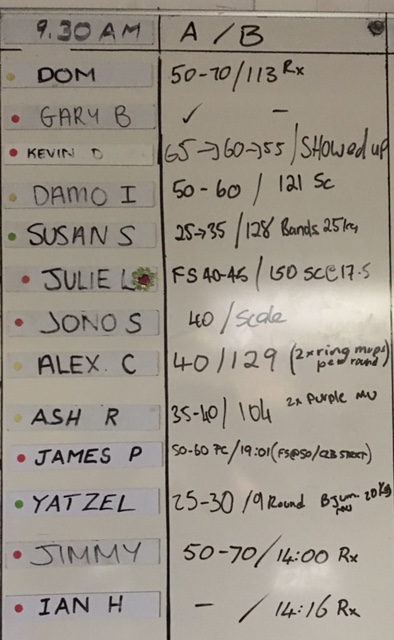 9.30 AM A / B
DOM 50-70/113 Rx
GARY B ✓ -
KEVIN D 65→60→55/SHOWed up
DAMO I 50-60 / 121 Sc
SUSAN S 25→35 /128 Bands 25kg
JULIE L FS 40-45 / 150 SC@17.5
JONO S 40 / Scale
ALEX. C 40/129 (2x ring mups per round)
ASH R 35-40/ 104 2x Purple MU
JAMES P 50-60 PC/19:01 (FS@50/
YATZEL 25-30 /9 Round 20kg
JIMMY 50-70/14:00 Rx
IAN H - / 14:16 Rx